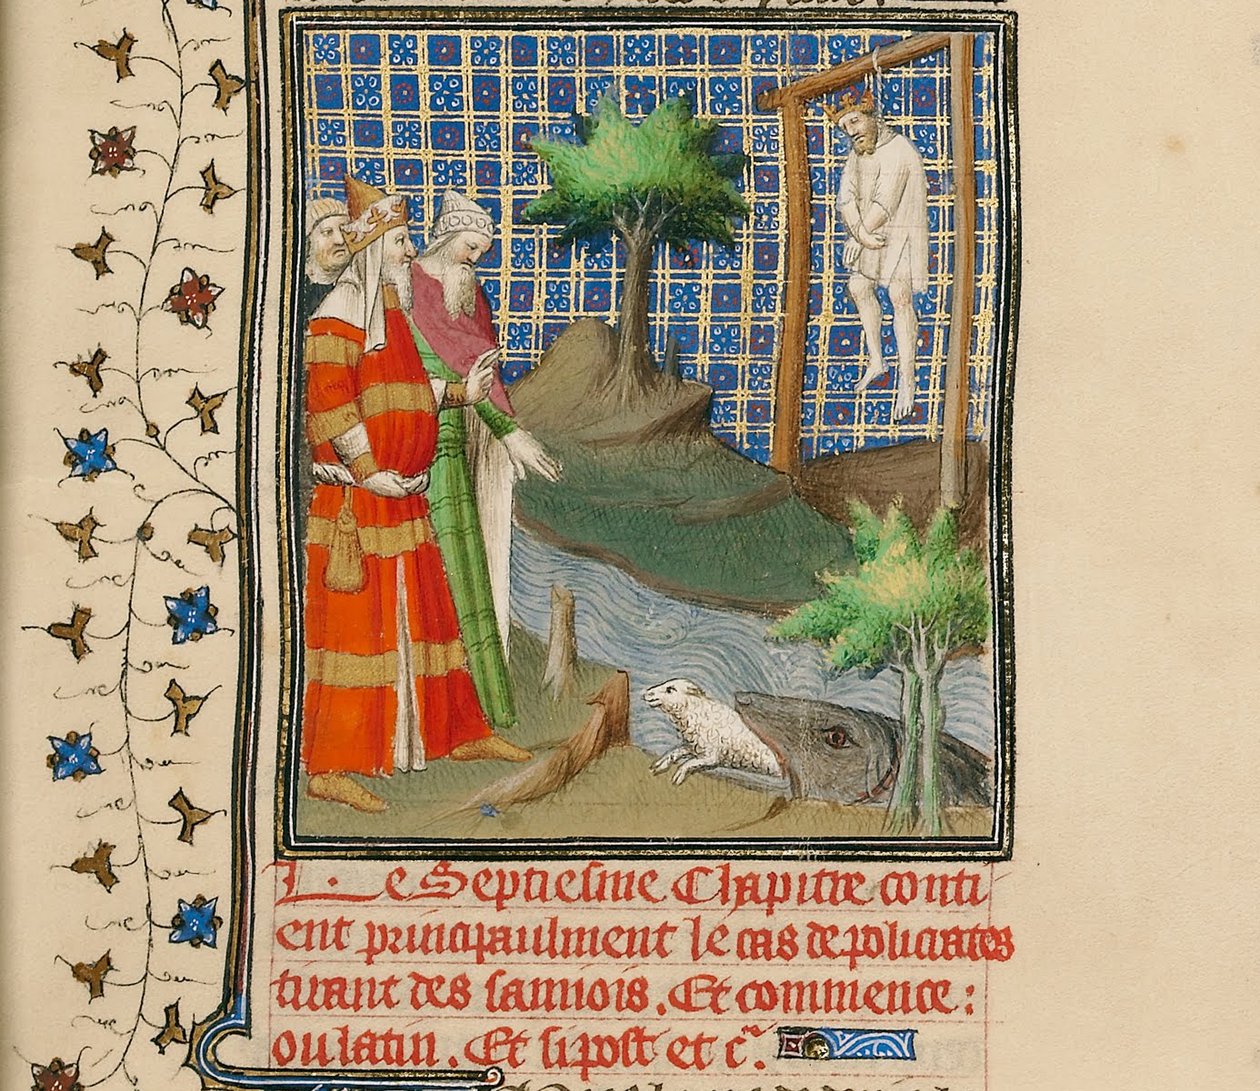 Le Septiesme Chapitre conti
ent principaulment le cas de policrates
tirant des samiois. Et commence:
ou latin. Et si post et c̃.